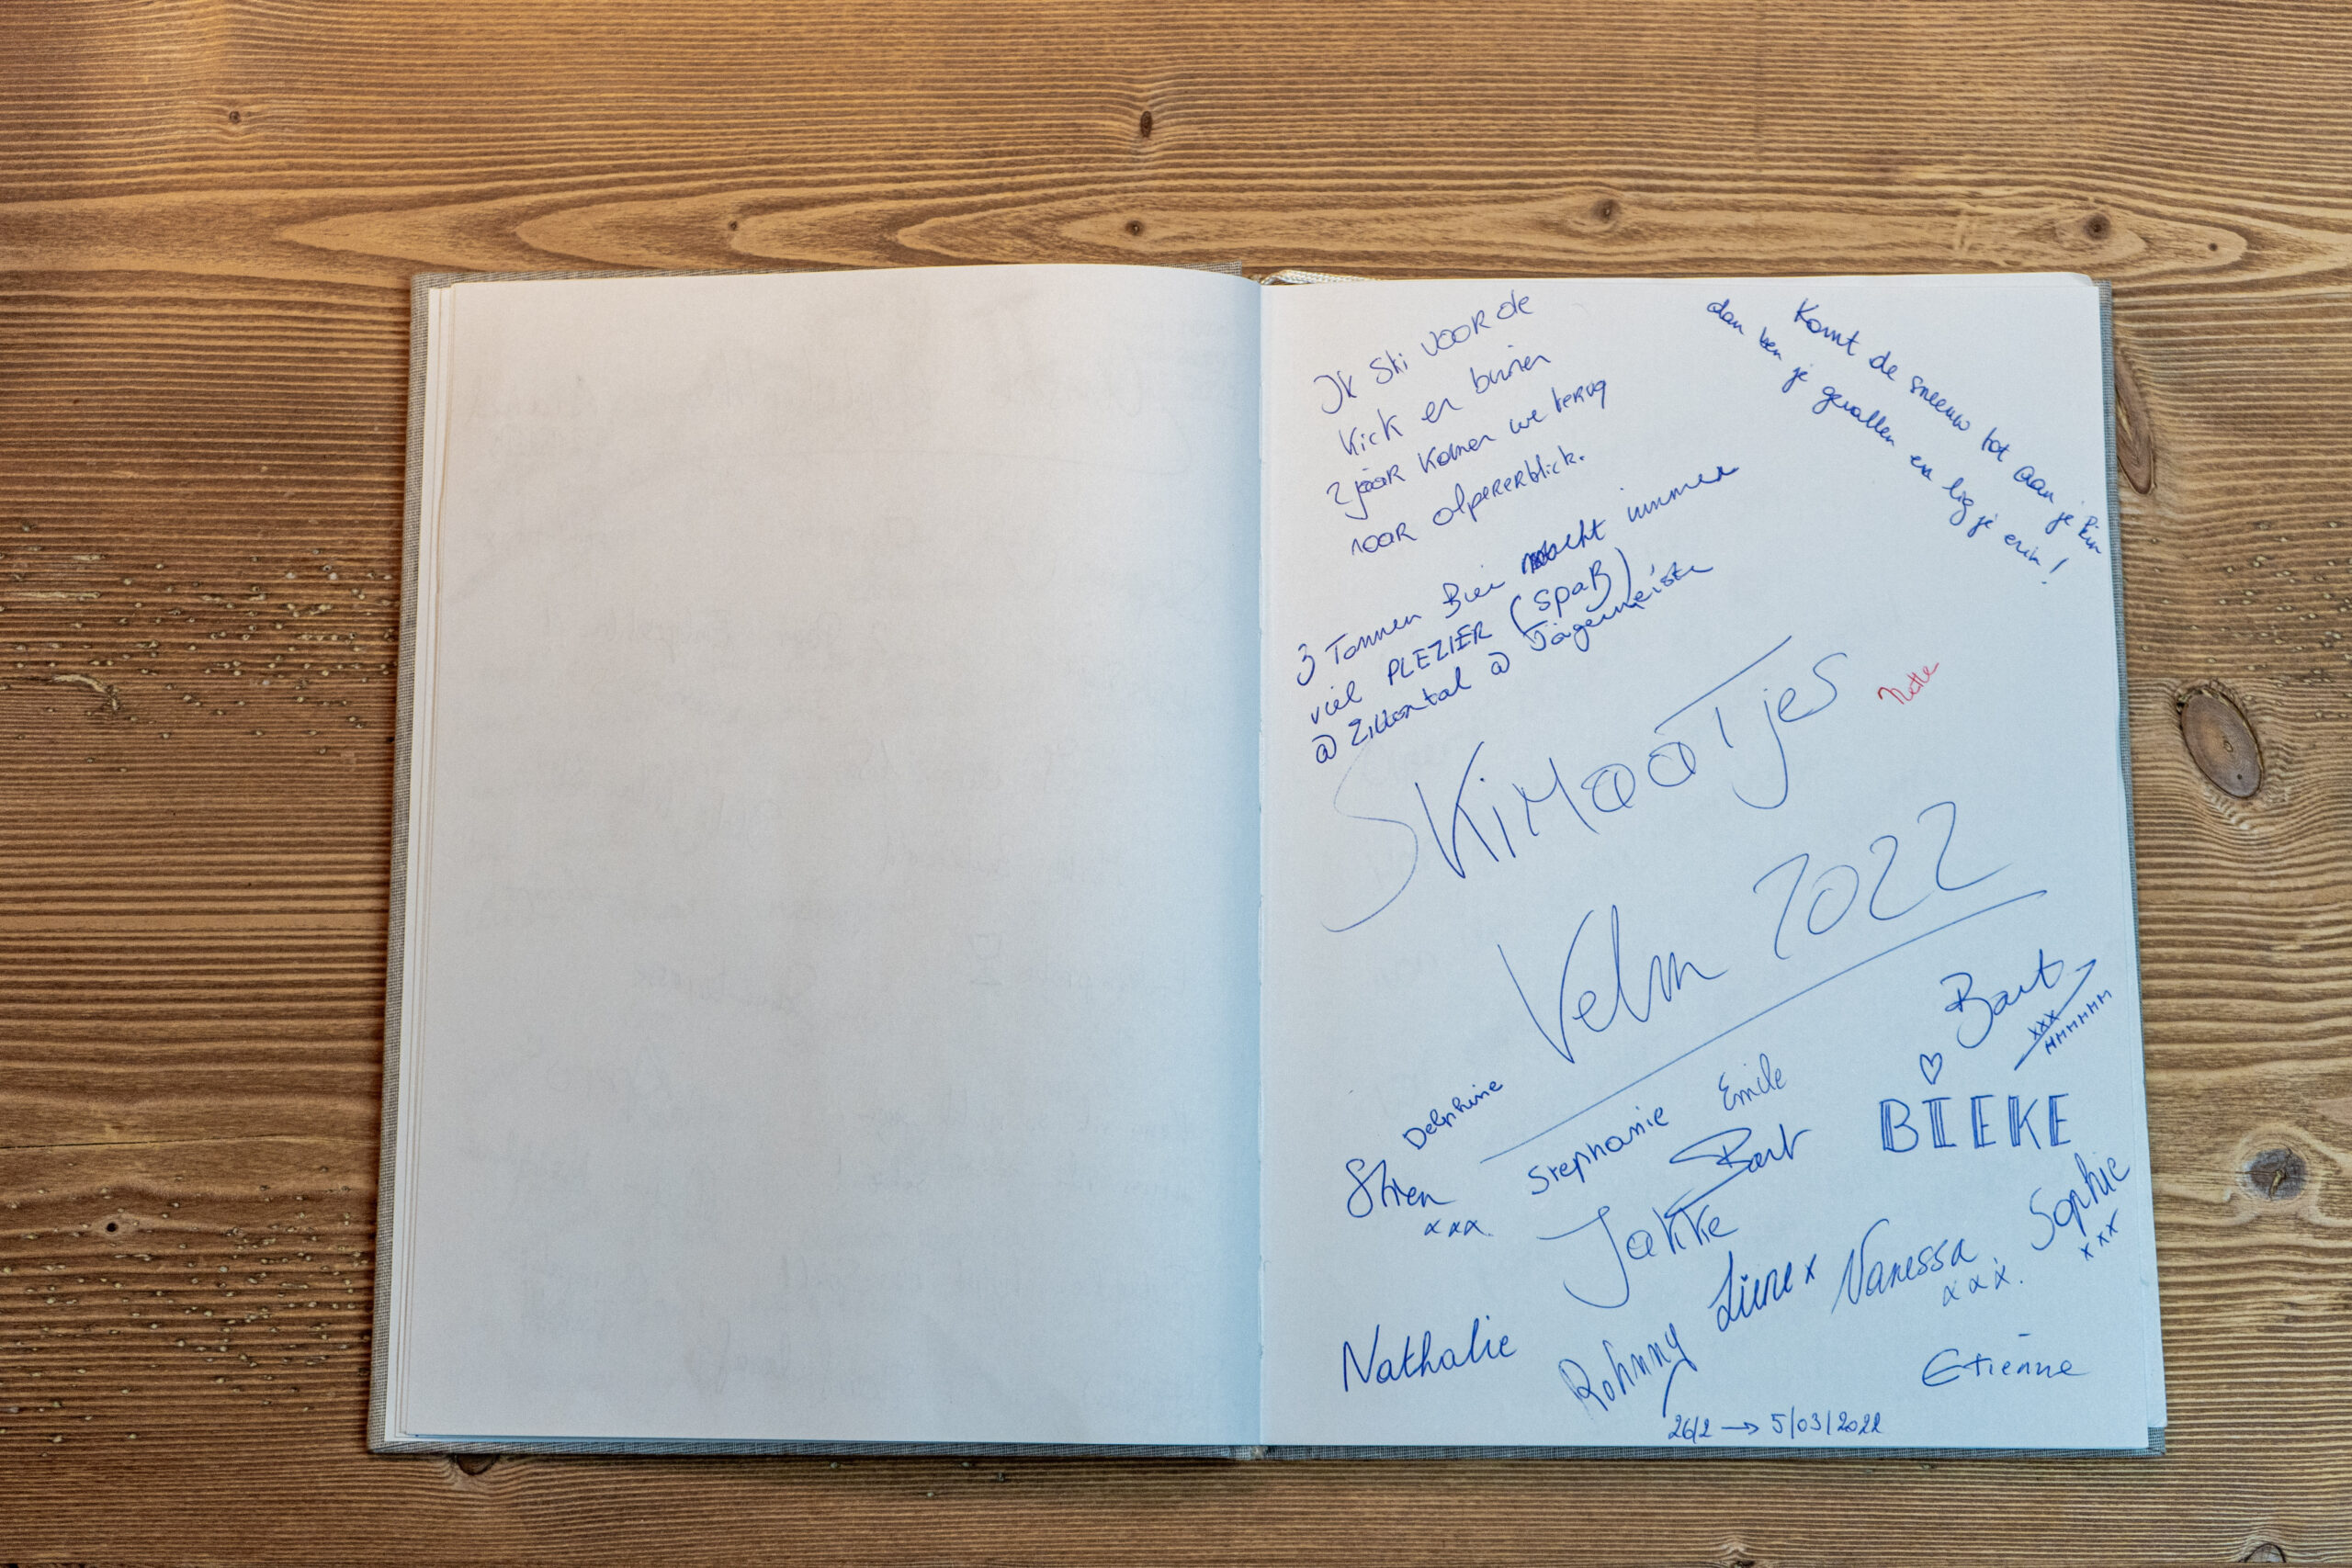 Ik Ski voor de
Kick en binnen
2 jaar Komen we terug
naar olpererblick.
Komt de sneeuw tot aan je kin
dan ben je gevallen en lig je erin!
3 Tonnen Bier macht immer
viel PLEZIER (SpaB)
@ Zillertal @ Jägermeister
SKiMaaTjes
Velm 2022
Bart
xxx
MMMMMM
Delphine
Stephanie
Emile
BIEKE
xxx
Bart
Jakke
Sophie
xxx
Liene x
Vanessa
xxx.
Nathalie
Rohnny
Etienne
26/2 → 5/03/2022